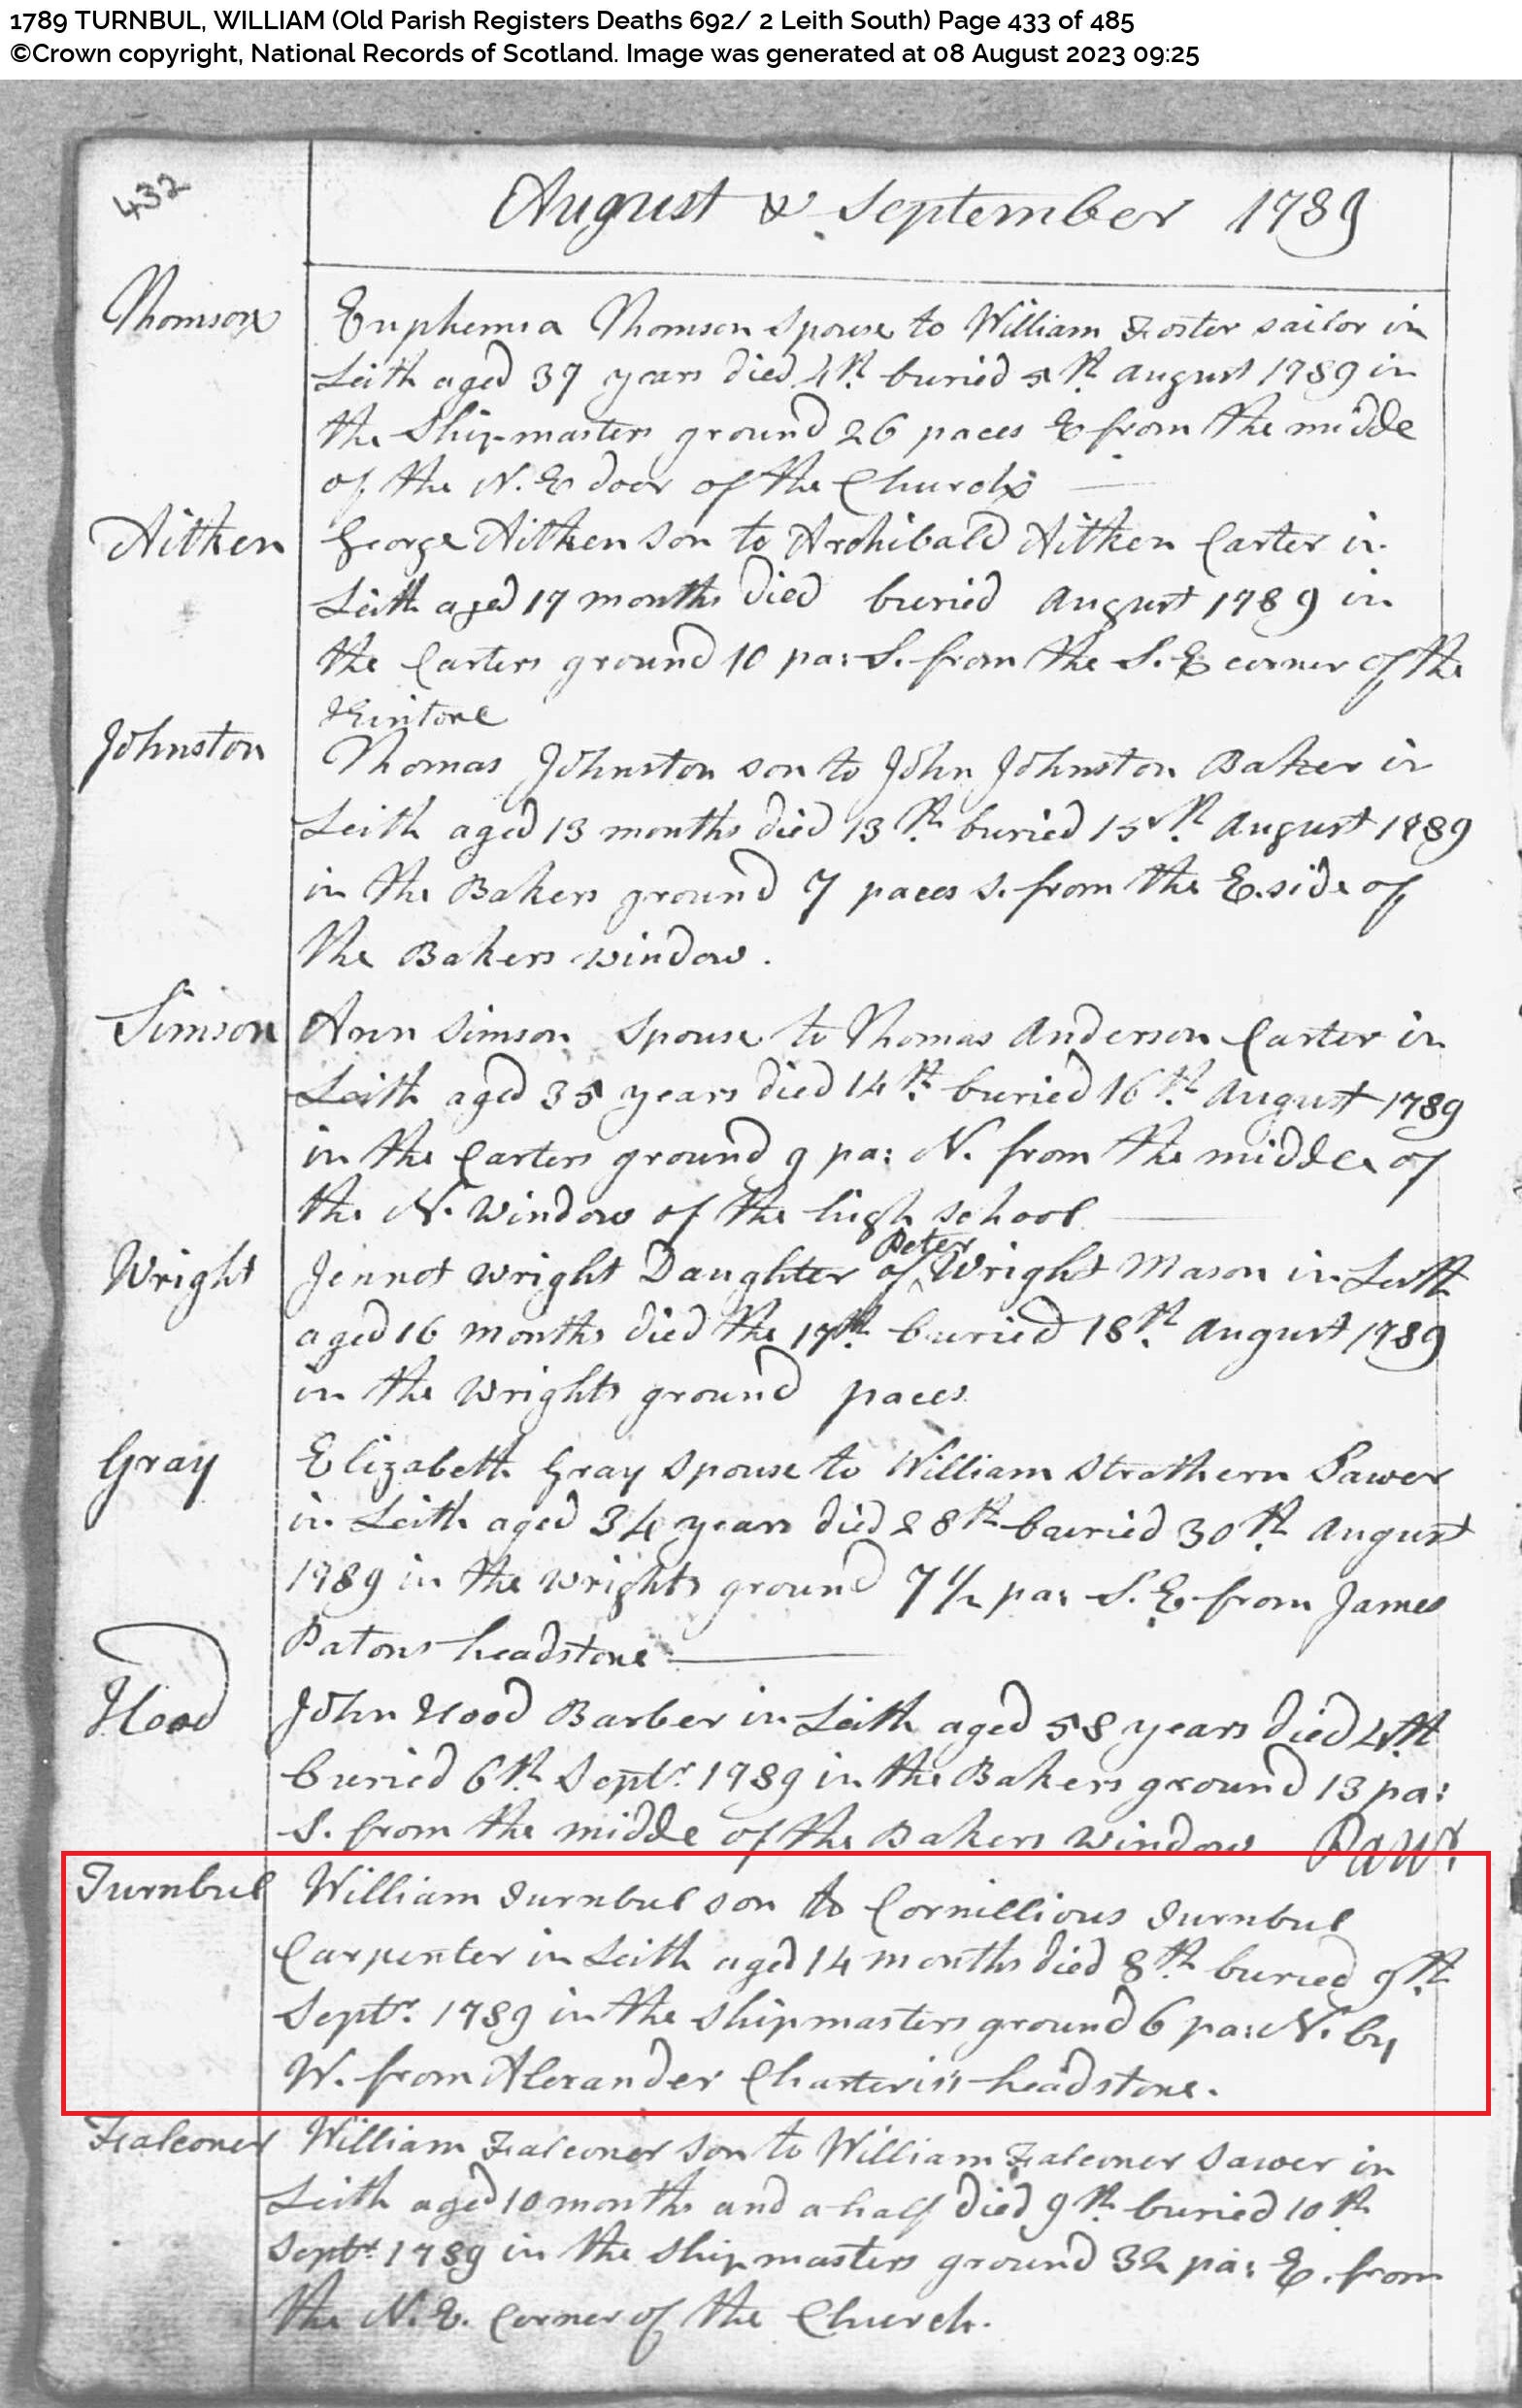 1789 TURNBUL, WILLIAM (Old Parish Registers Deaths 692/ 2 Leith South) Page 433 of 485
©Crown copyright, National Records of Scotland. Image was generated at 08 August 2023 09:25
432
August & September 1789
Thomson
Euphemia Thomson Spouse to William Foster sailor in
Leith aged 37 years died 4th. buried 5th. August 1789 in
the Shipmasters ground 26 paces E from the middle
of the N. E door of the Church
Aitken
George Aitken Son to Archibald Aitken Carter in
Leith aged 17 months died buried August 1789 in
the Carters ground 10 pa: S. from the S. E corner of the
Johnston
Thomas Johnston son to John Johnston Baker in
Leith aged 13 months died 13th. buried 15th. August 1789
in the Bakers ground 7 paces S. from the E. side of
the Bakers window.
Simson
Ann Simson Spouse to Thomas Anderson Carter in
Leith aged 35 years died 14th. buried 16th. August 1789
in the Carters ground 9 pa: N. from the middle of
the N. window of the high school
Wright
Jennet Wright Daughter of Peter Wright Mason in Leith
aged 16 months died the 17th. buried 18th. August 1789
in the Wrights ground paces
Gray
Elizabeth Gray Spouse to William Strathern Sawer
in Leith aged 34 years died 28th buried 30th. August
1789 in the Wrights ground 7 1/2 pa: S. E from James
Patons headstone
Hood
John Hood Barber in Leith aged 58 years died 4th
buried 6th. Septr. 1789 in the Bakers ground 13 pa:
S. from the middle of the Bakers Window
Turnbul
William Turnbul son to Cornillious Turnbul
Carpenter in Leith aged 14 months died 8th. buried 9th.
Septr. 1789 in the Shipmasters ground 6 pa: N. by
W. from Alexander Charteris's headstone.
Falconer
William Falconer Son to William Falconer Sawer in
Leith aged 10 months and a half died 9th. buried 10th.
Septr. 1789 in the Shipmasters ground 32 pa: E. from
the N. E. Corner of the Church.